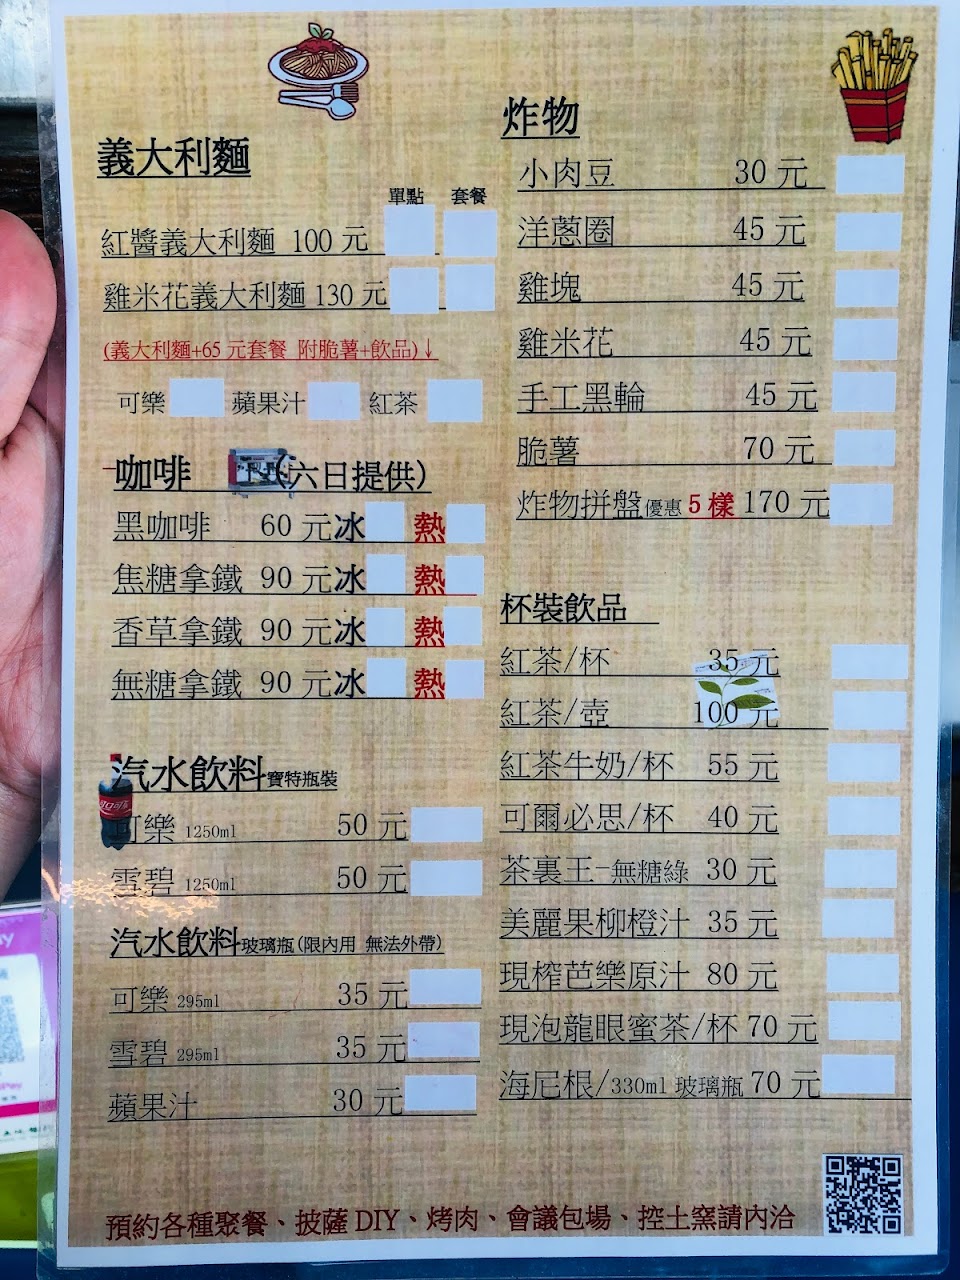 義大利麵
單點 套餐
紅醬義大利麵 100 元
雞米花義大利麵 130 元
(義大利麵+65 元套餐 附脆薯+飲品)↓
可樂 蘋果汁 紅茶
咖啡 (六日提供)
黑咖啡 60 元 冰 熱
焦糖拿鐵 90 元 冰 熱
香草拿鐵 90 元 冰 熱
無糖拿鐵 90 元 冰 熱
汽水飲料 寶特瓶裝
可樂 1250ml 50 元
雪碧 1250ml 50 元
汽水飲料 玻璃瓶(限內用 無法外帶)
可樂 295ml 35 元
雪碧 295ml 35 元
蘋果汁 30 元
炸物
小肉豆 30 元
洋蔥圈 45 元
雞塊 45 元
雞米花 45 元
手工黑輪 45 元
脆薯 70 元
炸物拼盤 優惠 5 樣 170 元
杯裝飲品
紅茶/杯 35 元
紅茶/壺 100 元
紅茶牛奶/杯 55 元
可爾必思/杯 40 元
茶裏王-無糖綠 30 元
美麗果柳橙汁 35 元
現榨芭樂原汁 80 元
現泡龍眼蜜茶/杯 70 元
海尼根/330ml 玻璃瓶 70 元
預約各種聚餐、披薩 DIY、烤肉、會議包場、控土窯請內洽